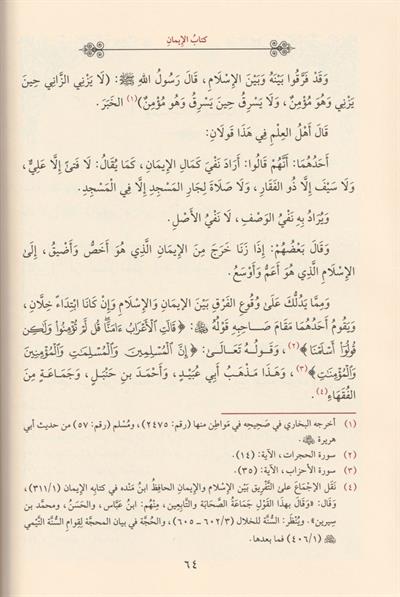 كتابُ الإِيمانِ
وَقَدْ فَرَّقُوا بَيْنَهُ وَبَيْنَ الإِسْلَامِ، قَالَ رَسُولُ اللهِ ﷺ: (لَا يَزْنِي الزَّانِي حِينَ
يَزْنِي وَهُوَ مُؤْمِنٌ، وَلَا يَسْرِقُ حِينَ يَسْرِقُ وَهُوَ مُؤْمِنٌ)(١) الخَبَرَ.
قَالَ أَهْلُ العِلْمِ فِي هَذَا قَولَانِ:
أَحَدُهُمَا: أَنَّهُمْ قَالُوا: أَرَادَ نَفْيَ كَمَالِ الإِيمَانِ، كَمَا يُقَالُ: لَا فَتىً إِلَّا عَلِيٌّ،
وَلَا سَيْفَ إِلَّا ذُو الفَقَارِ، وَلَا صَلَاةَ لِجَارِ المَسْجِدِ إِلَّا فِي الْمَسْجِدِ.
وَيُرَادُ بِهِ نَفْيُ الوَصْفِ، لَا نَفْيُ الأَصْلِ.
وَقَالَ بَعْضُهُمْ: إِذَا زَنَا خَرَجَ مِنَ الإِيمَانِ الَّذِي هُوَ أَخَصُّ وَأَضْيَقُ، إِلَىٰ
الإِسْلَامِ الَّذِي هُوَ أَعَمُّ وَأَوْسَعُ.
وَمِمَّا يَدُلُّكَ عَلَىٰ وُقُوعِ الفَرْقِ بَيْنَ الإِيمَانِ وَالإِسْلَامِ وَإِنْ كَانَا ابْتِدَاءً خِلَّانِ،
وَيَقُومُ أَحَدُهُمَا مَقَامَ صَاحِبِهِ قَوْلُهُ ﷻ: ﴿قَالَتِ الْأَعْرَابُ ءَامَنَّا قُل لَّمْ تُؤْمِنُوا وَلَٰكِن
قُولُوٓا أَسْلَمْنَا﴾(٢)، وَقَـولُـهُ تَعَـالَـىٰ: ﴿إِنَّ الْمُسْلِمِينَ وَالْمُسْلِمَٰتِ وَالْمُؤْمِنِينَ
وَالْمُؤْمِنَٰتِ﴾(٣)، وَهَذَا مَذْهَبُ أَبِي عُبَيْدٍ، وَأَحْمَدَ بْنِ حَنْبَلٍ، وَجَمَاعَةٍ مِنَ
الفُقَهَاءِ(٤).
(١) أخرجه البخاري في صَحِيحِهِ في مَواطِن منها (رقم: ٢٤٧٥)، ومُسْلم (رقم: ٥٧) من حديث أبي
هريرة ﵁.
(٢) سورة الحجرات، الآية: (١٤).
(٣) سورة الأحزاب، الآية: (٣٥).
(٤) نَقَل الإِجْمَاعَ علىٰ التَّفْرِيق بَيْن الإسْلام والإيمان الحافِظُ ابنُ مَنْده في كتابه الإيمان (٣١١/١)
وَقَالَ: «وَقَالَ بهذا القَوْلِ جَمَاعَةُ الصَّحَابَة والتَّابِعين، مِنْهُم: ابنُ عبَّاس، والحَسَنُ، ومحمد بن
سيرين». ويُنْظَر: السُّنَّة للخلال (٦٠٢/٣ – ٦٠٥)، والحُجَّة في بيان المحجَّة لقِوام السُّنَّة التَّيْمي
(٤٠٦/١) فما بعدها.
٦٤